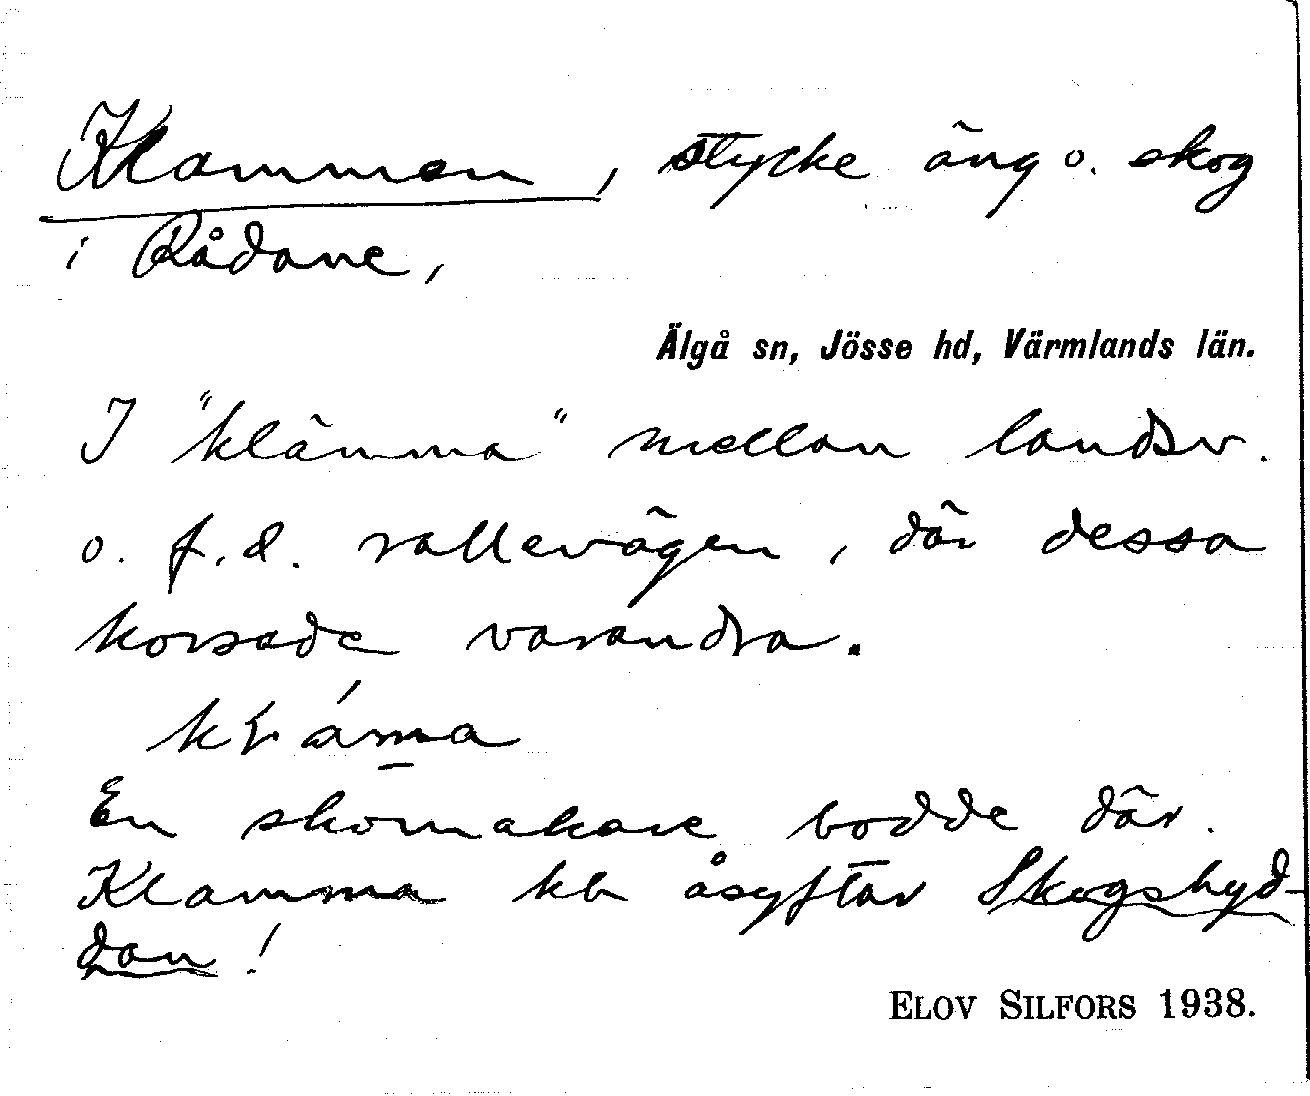 Klamman, stycke äng o. skog
i Rådane,
Älgå sn, Jösse hd, Värmlands län.
I "klämma" mellan landsv.
o. f.d. rallevägen, där dessa
korsade varandra.
En skomakare bodde där.
Klamma kb åsyftar Skogshyd-
dan!
ELOV SILFORS 1938.